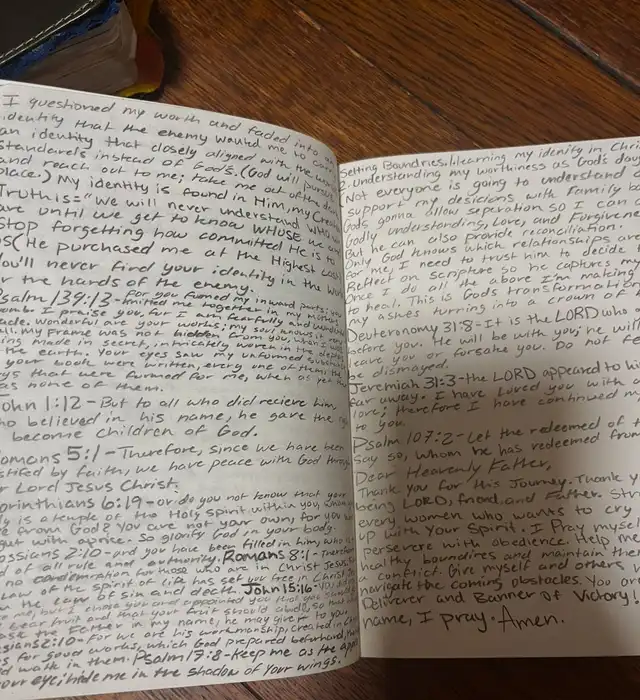 I questioned my worth and faded into an
identity that the enemy wanted me to
an identity that closely aligned with the
standards instead of God's. (God will
and reach out to me; take me out of the
place.) My identity is found in Him, my
Truth is = "We will never understand who we
are until we get to know WHOSE we
stop forgetting how committed He is to
us (He purchased me at the Highest
You'll never find your identity in the
or the hands of the enemy.
Psalm 139:13 - For you formed my inward parts; you
knitted me together in my mother's
womb. I praise you, for I am fearfully and wonderfully
made. Wonderful are your works; my soul knows it
My frame was not hidden from you, when I was
being made in secret, intricately woven in the depths
of the earth. Your eyes saw my unformed substance
in your book were written, every one of them, the
days that were formed for me, when as yet there
was none of them.
John 1:12 - But to all who did recieve him,
who believed in his name, he gave the
become children of God.
Romans 5:1 - Therefore, since we have been
justified by faith, we have peace with God through
our Lord Jesus Christ.
Corinthians 6:19 - or do you not know that your
body is a temple of the Holy Spirit within you,
have from God? You are not your own, for you
bought with a price. So glorify God in your body.
Colossians 2:10 - and you have been filled in him, who is
of all rule and authority. Romans 8:1 - Therefore
no condemnation for those who are in Christ Jesus.
Law of the spirit of life has set you free in Christ
the law of sin and death. John 15:16
me, but I chose you and appointed you that you should
bear fruit and that your fruit should abide, so that
ask the Father in my name, he may give to you.
Ephesians 2:10 - For we are his workmanship, created in Christ
for good works, which God prepared beforehand, that
should walk in them. Psalm 17:8 - Keep me as the apple
your eye; hide me in the shadow of Your wings.
Setting Boundries, learning my idenity in Chri
2. Understanding my worthiness as God's daug
Not everyone is going to understand o
support my desicions with family b
Gods gonna allow seperation so I can
Godly understanding, Love, and Forgivene
But he can also provide reconciliation.
Only God knows which relationships are
for me, I need to trust him to decide.
Reflect on scripture so he captures my
Once I do all the above I'm making
to heal. This is God's transformation
my ashes turning into a crown of
Deuteronomy 31:8 - It is the LORD who
before you. He will be with you; he will
leave you or forsake you. Do not fe
be dismayed.
Jeremiah 31:3 - the LORD appeared to hi
far away. I have loved you with
love; therefore I have continued my
to you.
Psalm 107:2 - Let the redeemed of t
say so, whom he has redeemed from
Dear Heavenly Father,
Thank you for this Journey. Thank y
being LORD, friend, and Father. Str
every women who wants to cry
up with Your Spirit. I Pray mysel
persevere with obedience. Help me
healthy boundires and maintain the
a conflict. Give myself and others
navigate the coming obstacles. You ar
Deliver and Banner of Victory!
name, I pray. Amen.